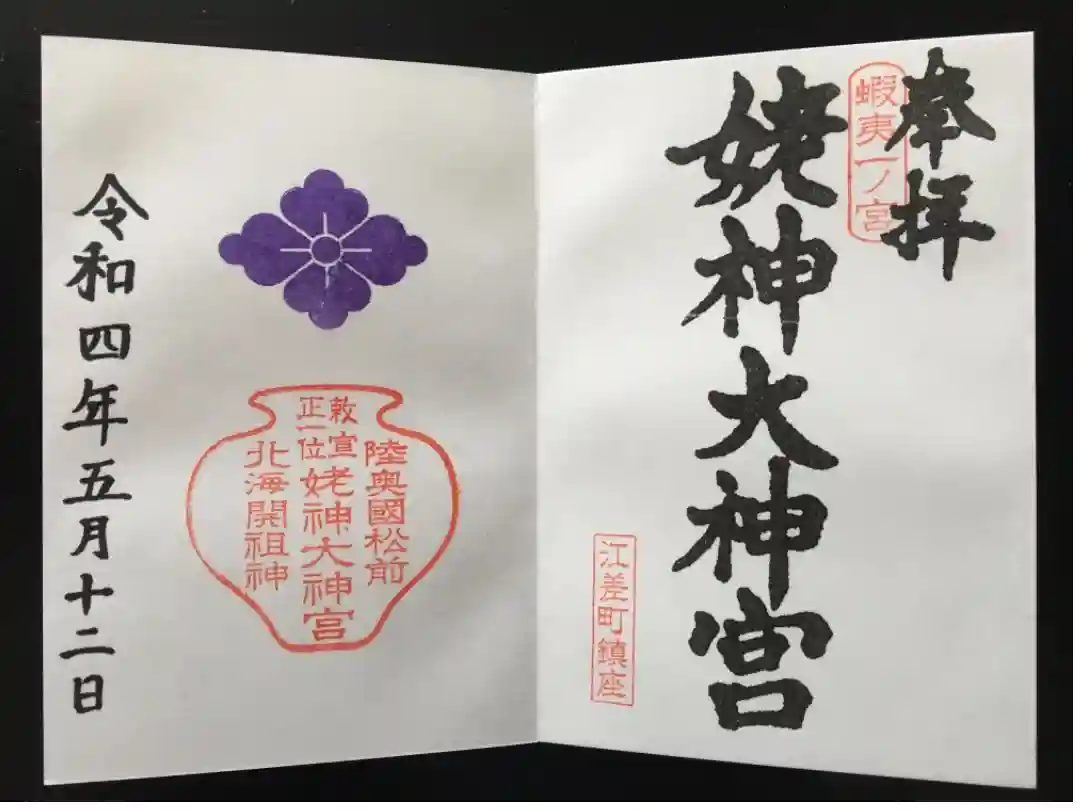 奉拝
蝦夷一ノ宮
姥神大神宮
江差町鎮座
陸奥國松前
敕宣
正一位
姥神大神宮
北海開祖神
令和四年五月十二日